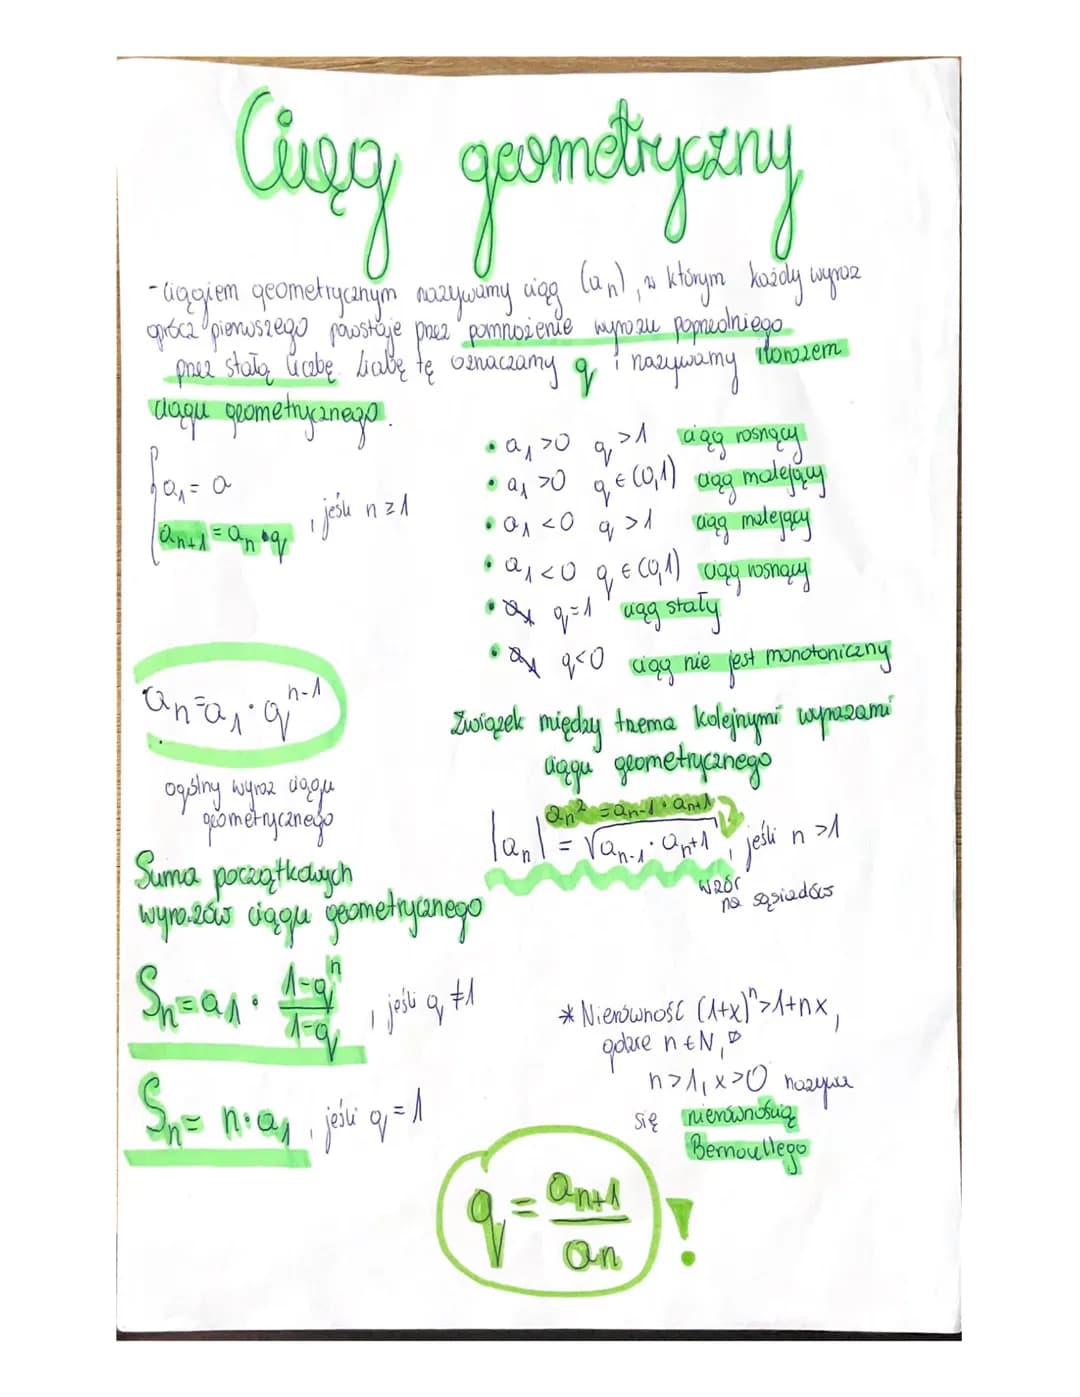 Ciąg geometryczny
- ciągiem geometrycznym nazywamy ciąg (aₙ), w którym każdy wyraz
oprócz pierwszego powstaje przez pomnożenie wyrazu poprzedniego
przez stałą liczbę. Liczbę tę oznaczamy q i nazywamy ilorazem
ciągu geometrycznego.
{ a₁ = a
aₙ₊₁ = aₙ • q , jeśli n ≥ 1
• a₁ > 0 q > 1 ciąg rosnący
• a₁ > 0 q ∈ (0,1) ciąg malejący
• a₁ < 0 q > 1 ciąg malejący
• a₁ < 0 q ∈ (0,1) ciąg rosnący
• q = 1 ciąg stały
• q < 0 ciąg nie jest monotoniczny
aₙ = a₁ · qⁿ⁻¹
ogólny wyraz ciągu
geometrycznego
Związek między trzema kolejnymi wyrazami
ciągu geometrycznego
aₙ² = aₙ₋₁ • aₙ₊₁
|aₙ| = √(aₙ₋₁ · aₙ₊₁) , jeśli n > 1
wzór
na sąsiadów
Suma początkowych
wyrazów ciągu geometrycznego
Sₙ = a₁ • (1-qⁿ)/(1-q) , jeśli q ≠ 1
Sₙ = n • a₁ , jeśli q = 1
* Nierówność (1+x)ⁿ > 1+nx,
gdzie n ∈ N,
n > 1, x > 0 nazywa
się nierównością
Bernoullego
q = aₙ₊₁/aₙ !